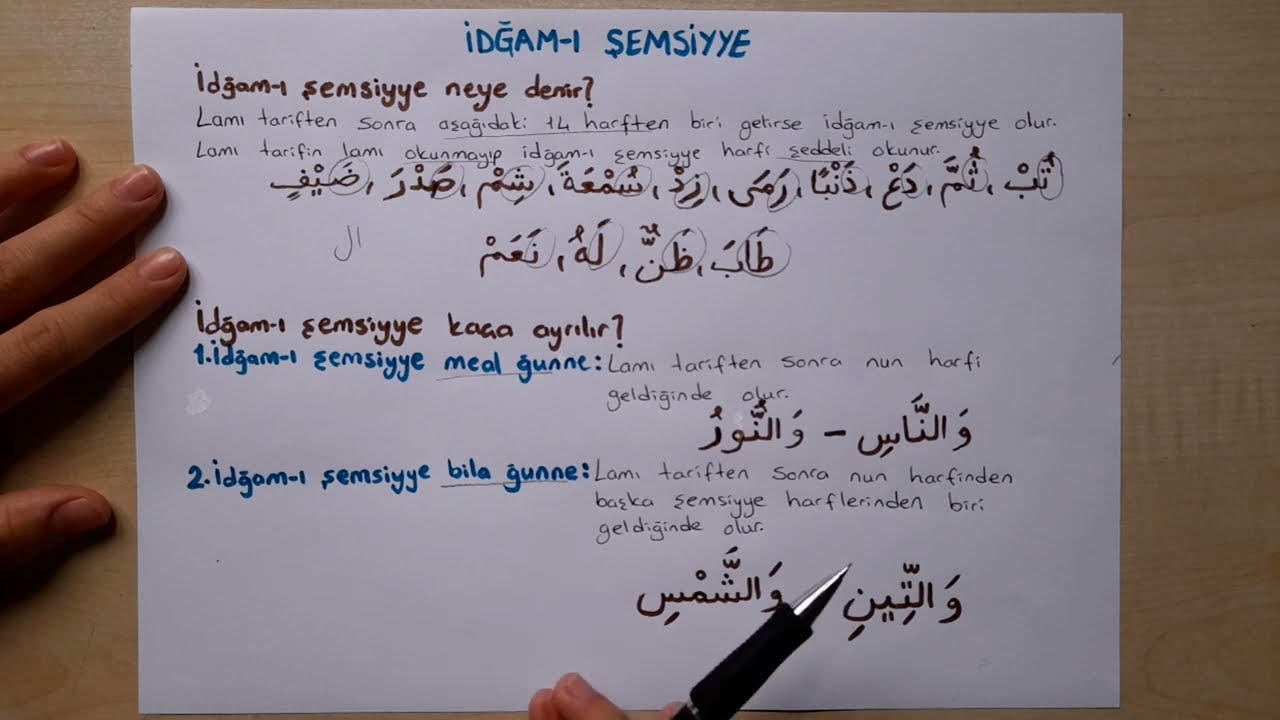 İDĞAM-I ŞEMSİYYE
İdğam-ı şemsiyye neye denir?
Lamı tariften sonra aşağıdaki 14 harften biri gelirse idğam-ı şemsiyye olur.
Lamı tarifin lamı okunmayıp idğam-ı şemsiyye harfi şeddeli okunur.
تُبْ، ثُمَّ، دَعْ، ذَنْبًا، رَمَى، زِدْ، سُمْعَةَ، شِمْ، صَدْرَ، ضَيْفٍ
طَابَ، ظَنٌّ، لَهُ، نَعَمْ
ال
İdğam-ı şemsiyye kaça ayrılır?
1.İdğam-ı şemsiyye meal ğunne: Lamı tariften sonra nun harfi
geldiğinde olur.
وَالنَّاسِ - وَالنُّورُ
2.İdğam-ı şemsiyye bila ğunne: Lamı tariften sonra nun harfinden
başka şemsiyye harflerinden biri
geldiğinde olur.
وَالتِّينِ وَالشَّمْسِ